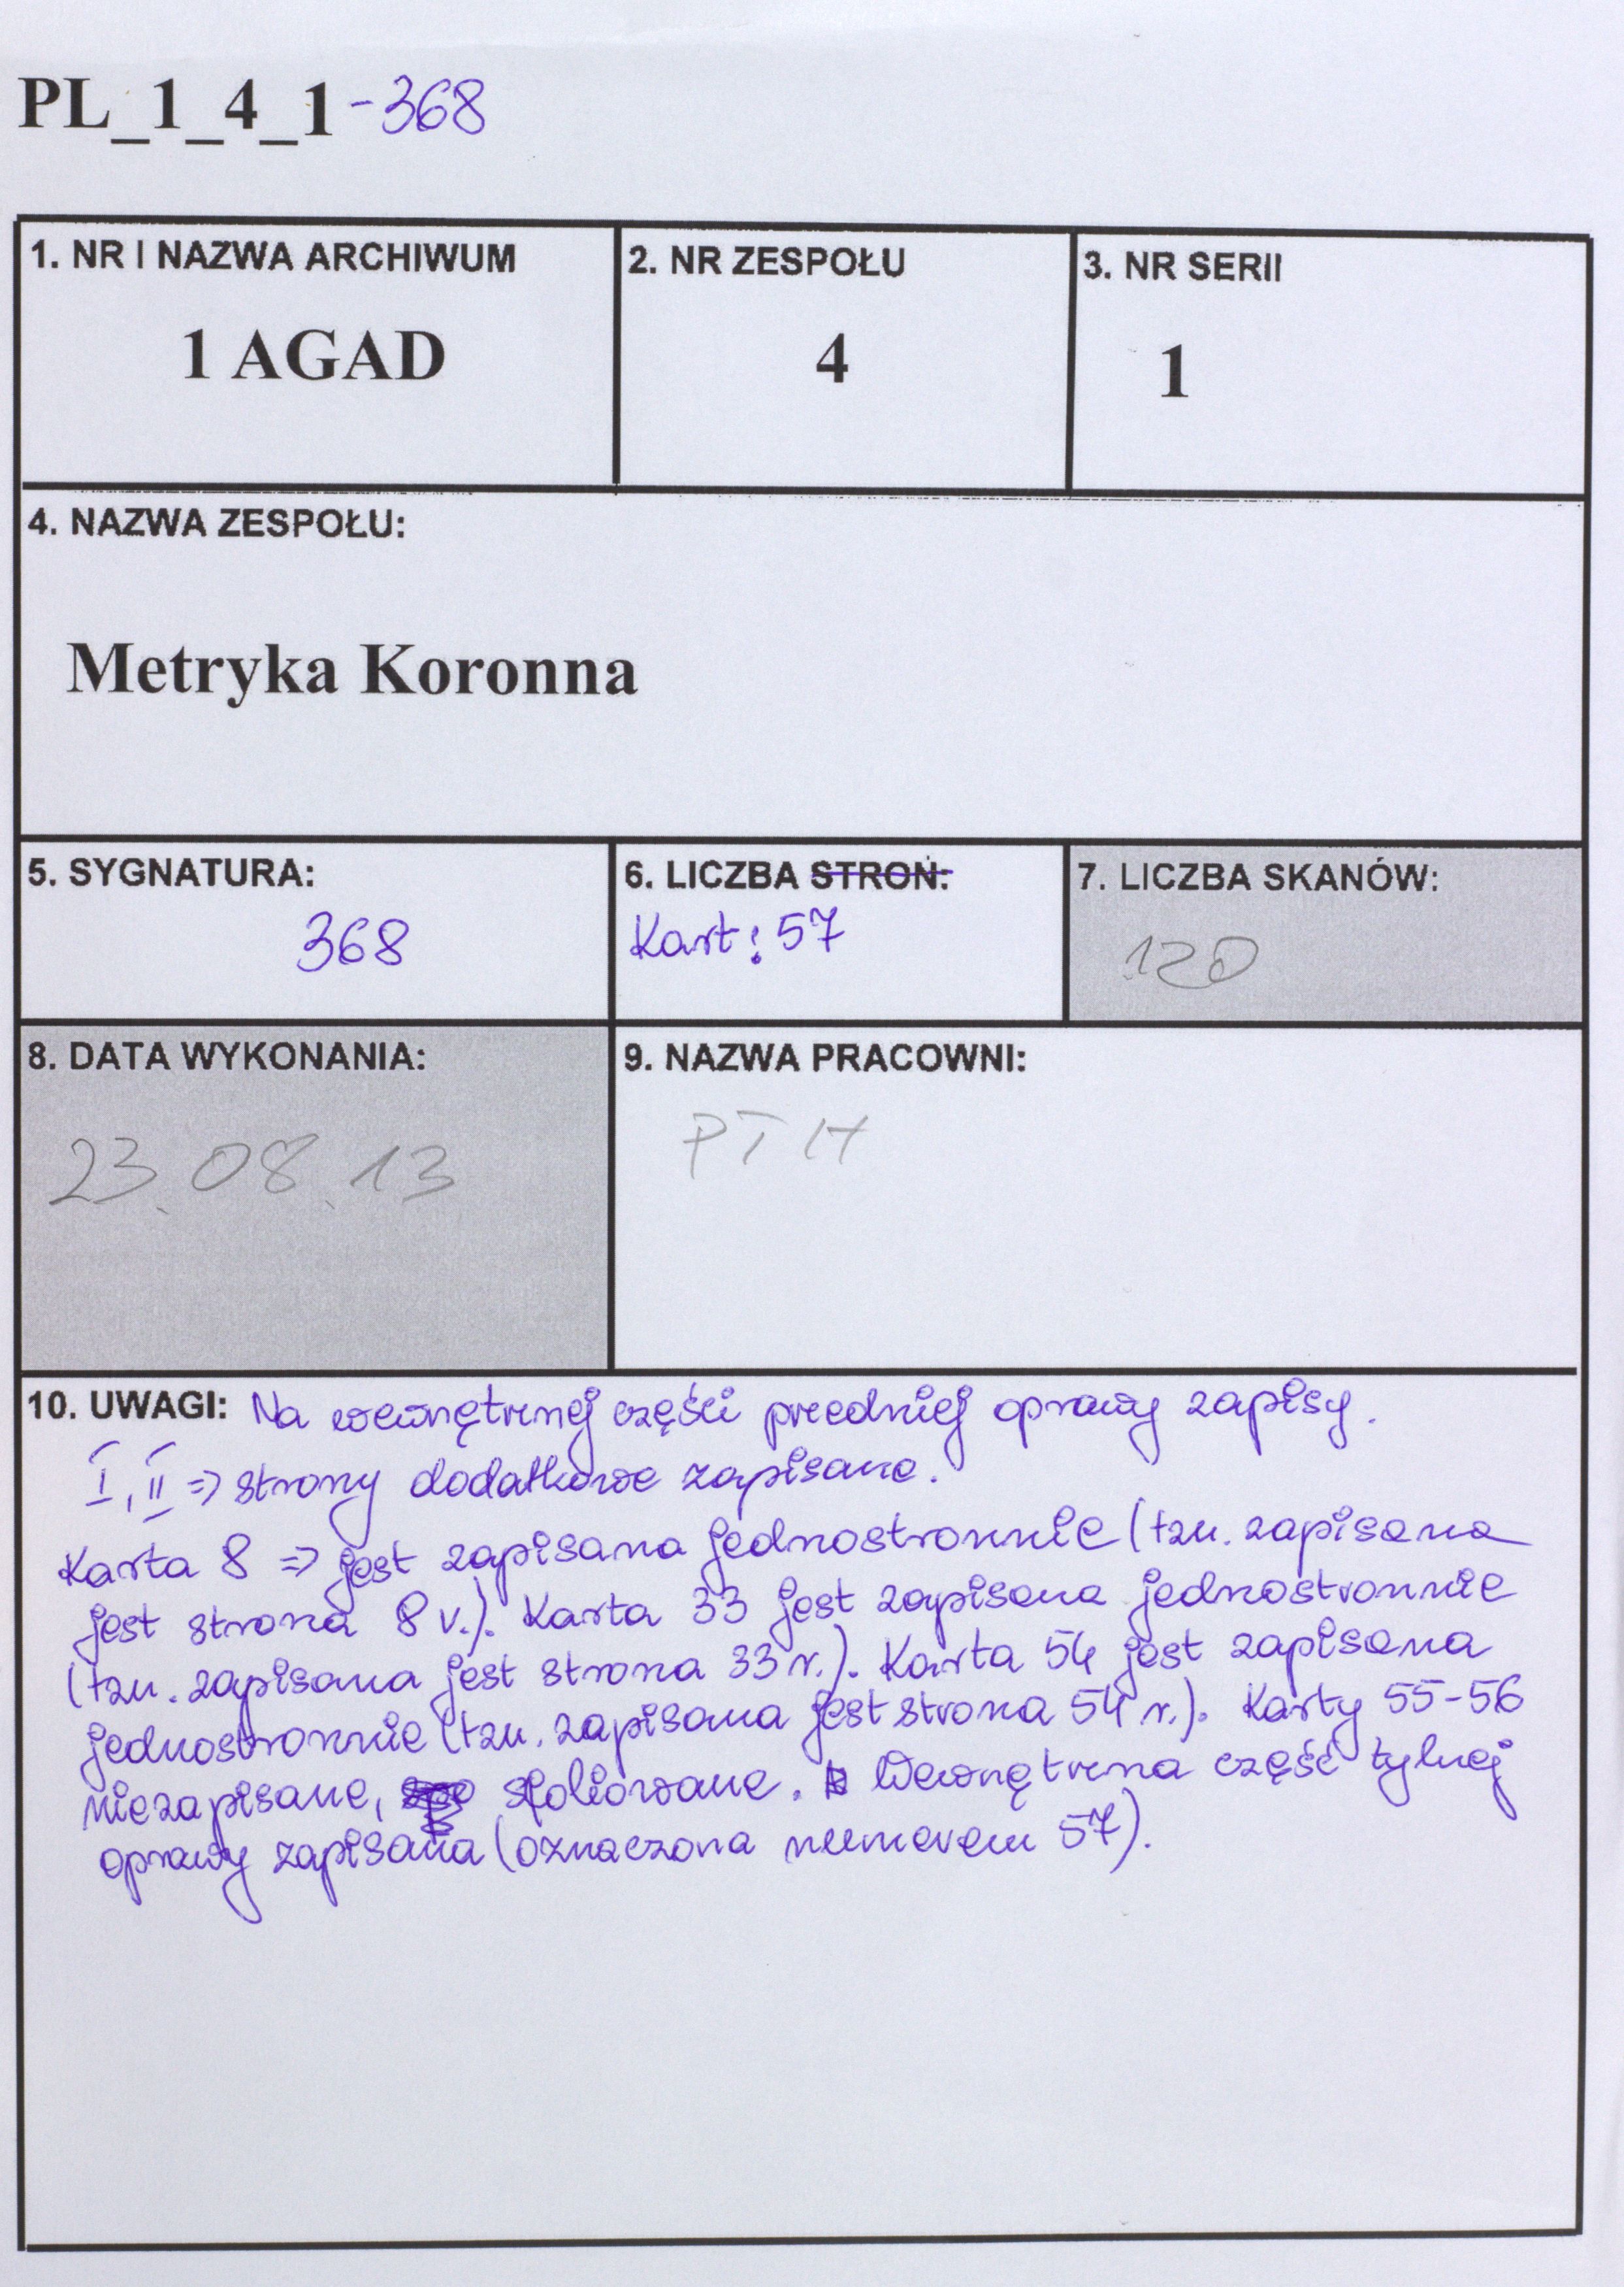 PL_1_4_1-368
1. NR I NAZWA ARCHIWUM
1 AGAD
2. NR ZESPOŁU
4
3. NR SERII
1
4. NAZWA ZESPOŁU:
Metryka Koronna
5. SYGNATURA:
368
6. LICZBA STRON:
Kart: 57
7. LICZBA SKANÓW:
120
8. DATA WYKONANIA:
23.08.13
9. NAZWA PRACOWNI:
PTH
10. UWAGI: Na wewnętrznej części przedniej oprawy zapisy.
I, II => strony dodatkowe zapisane.
Karta 8 => jest zapisana jednostronnie (tzn. zapisana
jest strona 8 v.). Karta 33 jest zapisana jednostronnie
(tzn. zapisana jest strona 33 r.). Karta 54 jest zapisana
jednostronnie (tzn. zapisana jest strona 54 r.). Karty 55-56
niezapisane, sfoliowane. Wewnętrzna część tylnej
oprawy zapisana (oznaczona numerem 57).